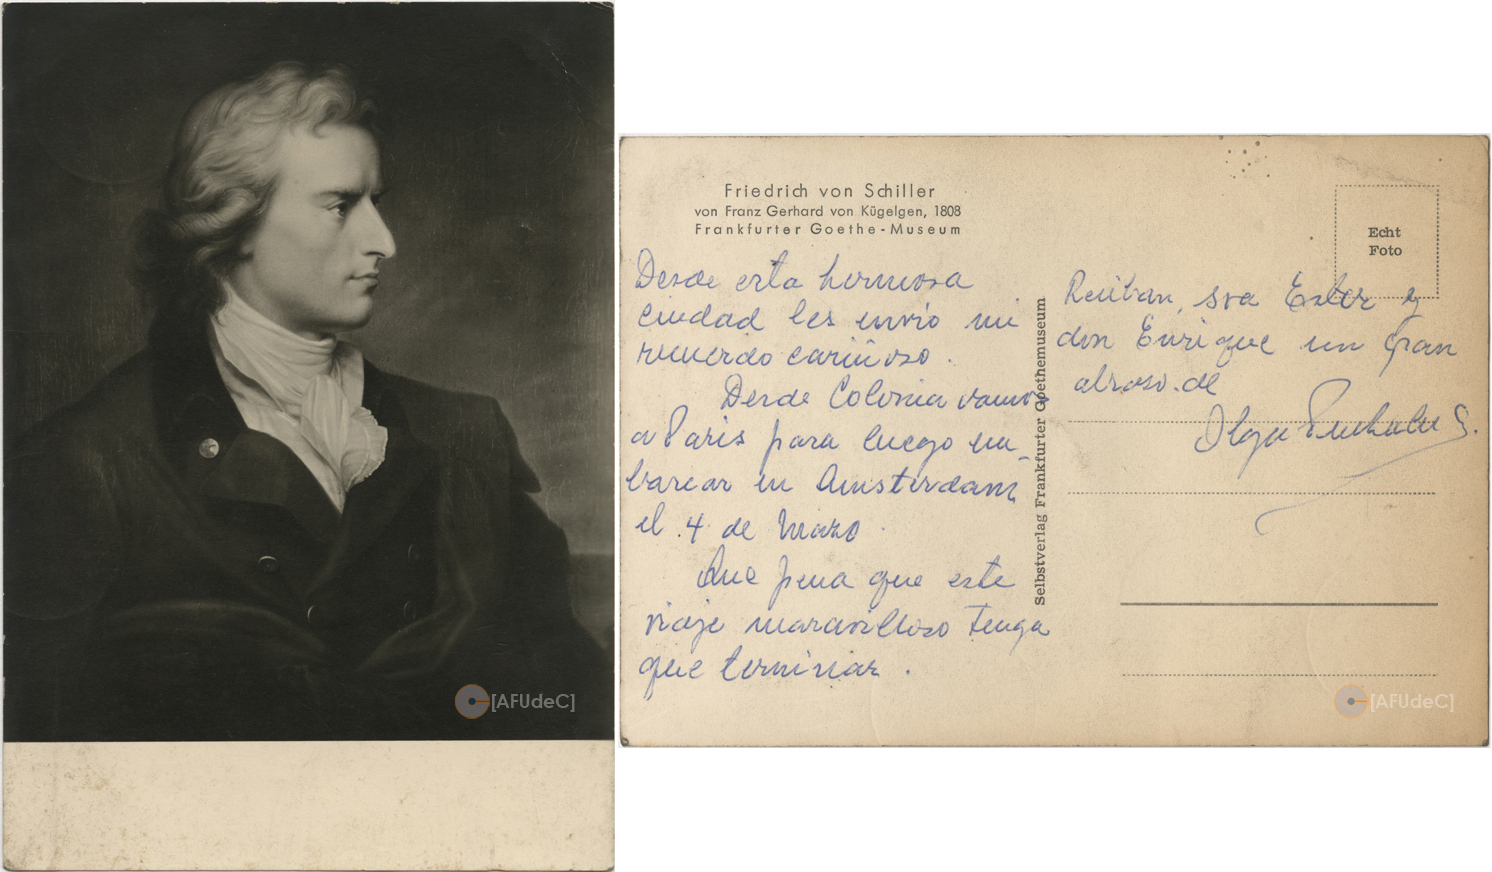 [AFUdeC]
Friedrich von Schiller
von Franz Gerhard von Kügelgen, 1808
Frankfurter Goethe-Museum
Echt
Foto
Desde esta hermosa
ciudad les envío mi
recuerdo cariñoso.
Desde Colonia vamos
a Paris para luego em-
barcar en Amsterdam
el 4 de Marzo.
Que pena que este
viaje maravilloso tenga
que terminar.
Selbstverlag Frankfurter Goethemuseum
Reciban, sra Ester y
don Enrique un gran
abrazo de
Olga
[AFUdeC]